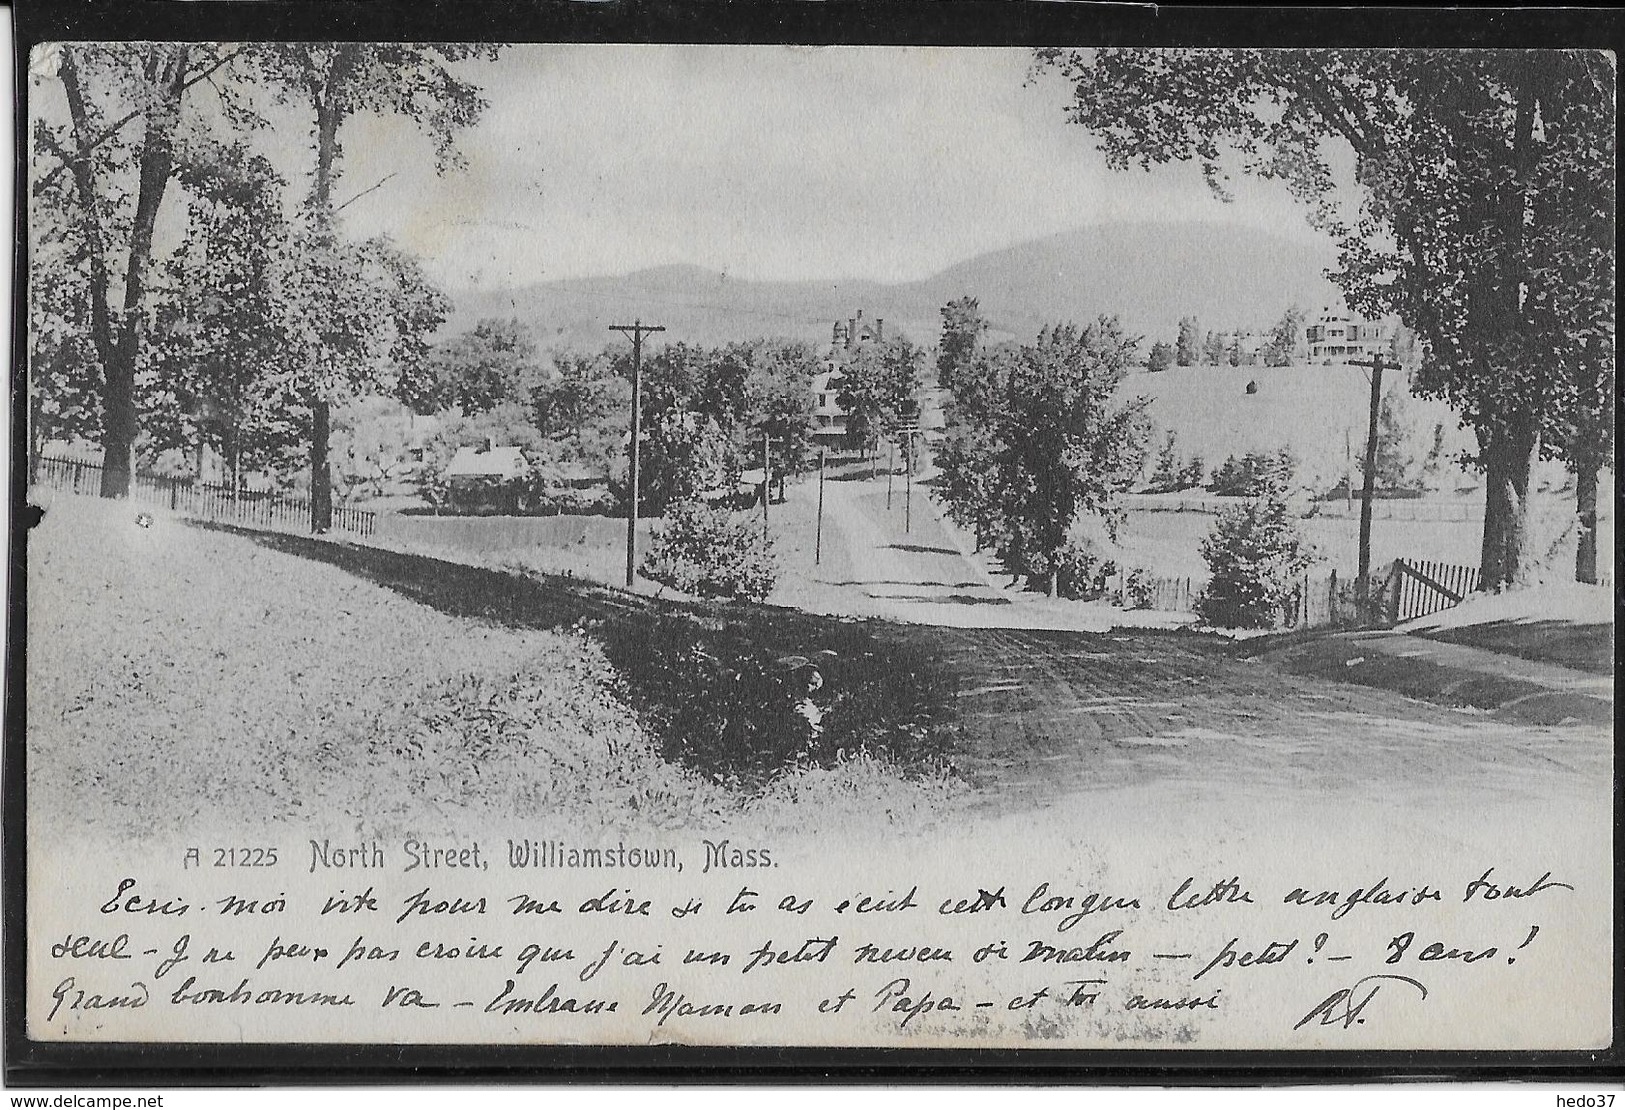 A 21225 North Street, Williamstown, Mass.
Ecris-moi vite pour me dire si tu as écrit cette longue lettre anglaise tout
seul - Je ne peux pas croire que j'ai un petit neveu si malin — petit? - 8 ans!
Grand bonhomme va - Embrasse Maman et Papa - et toi aussi RT.
delcampe.net
hedo37